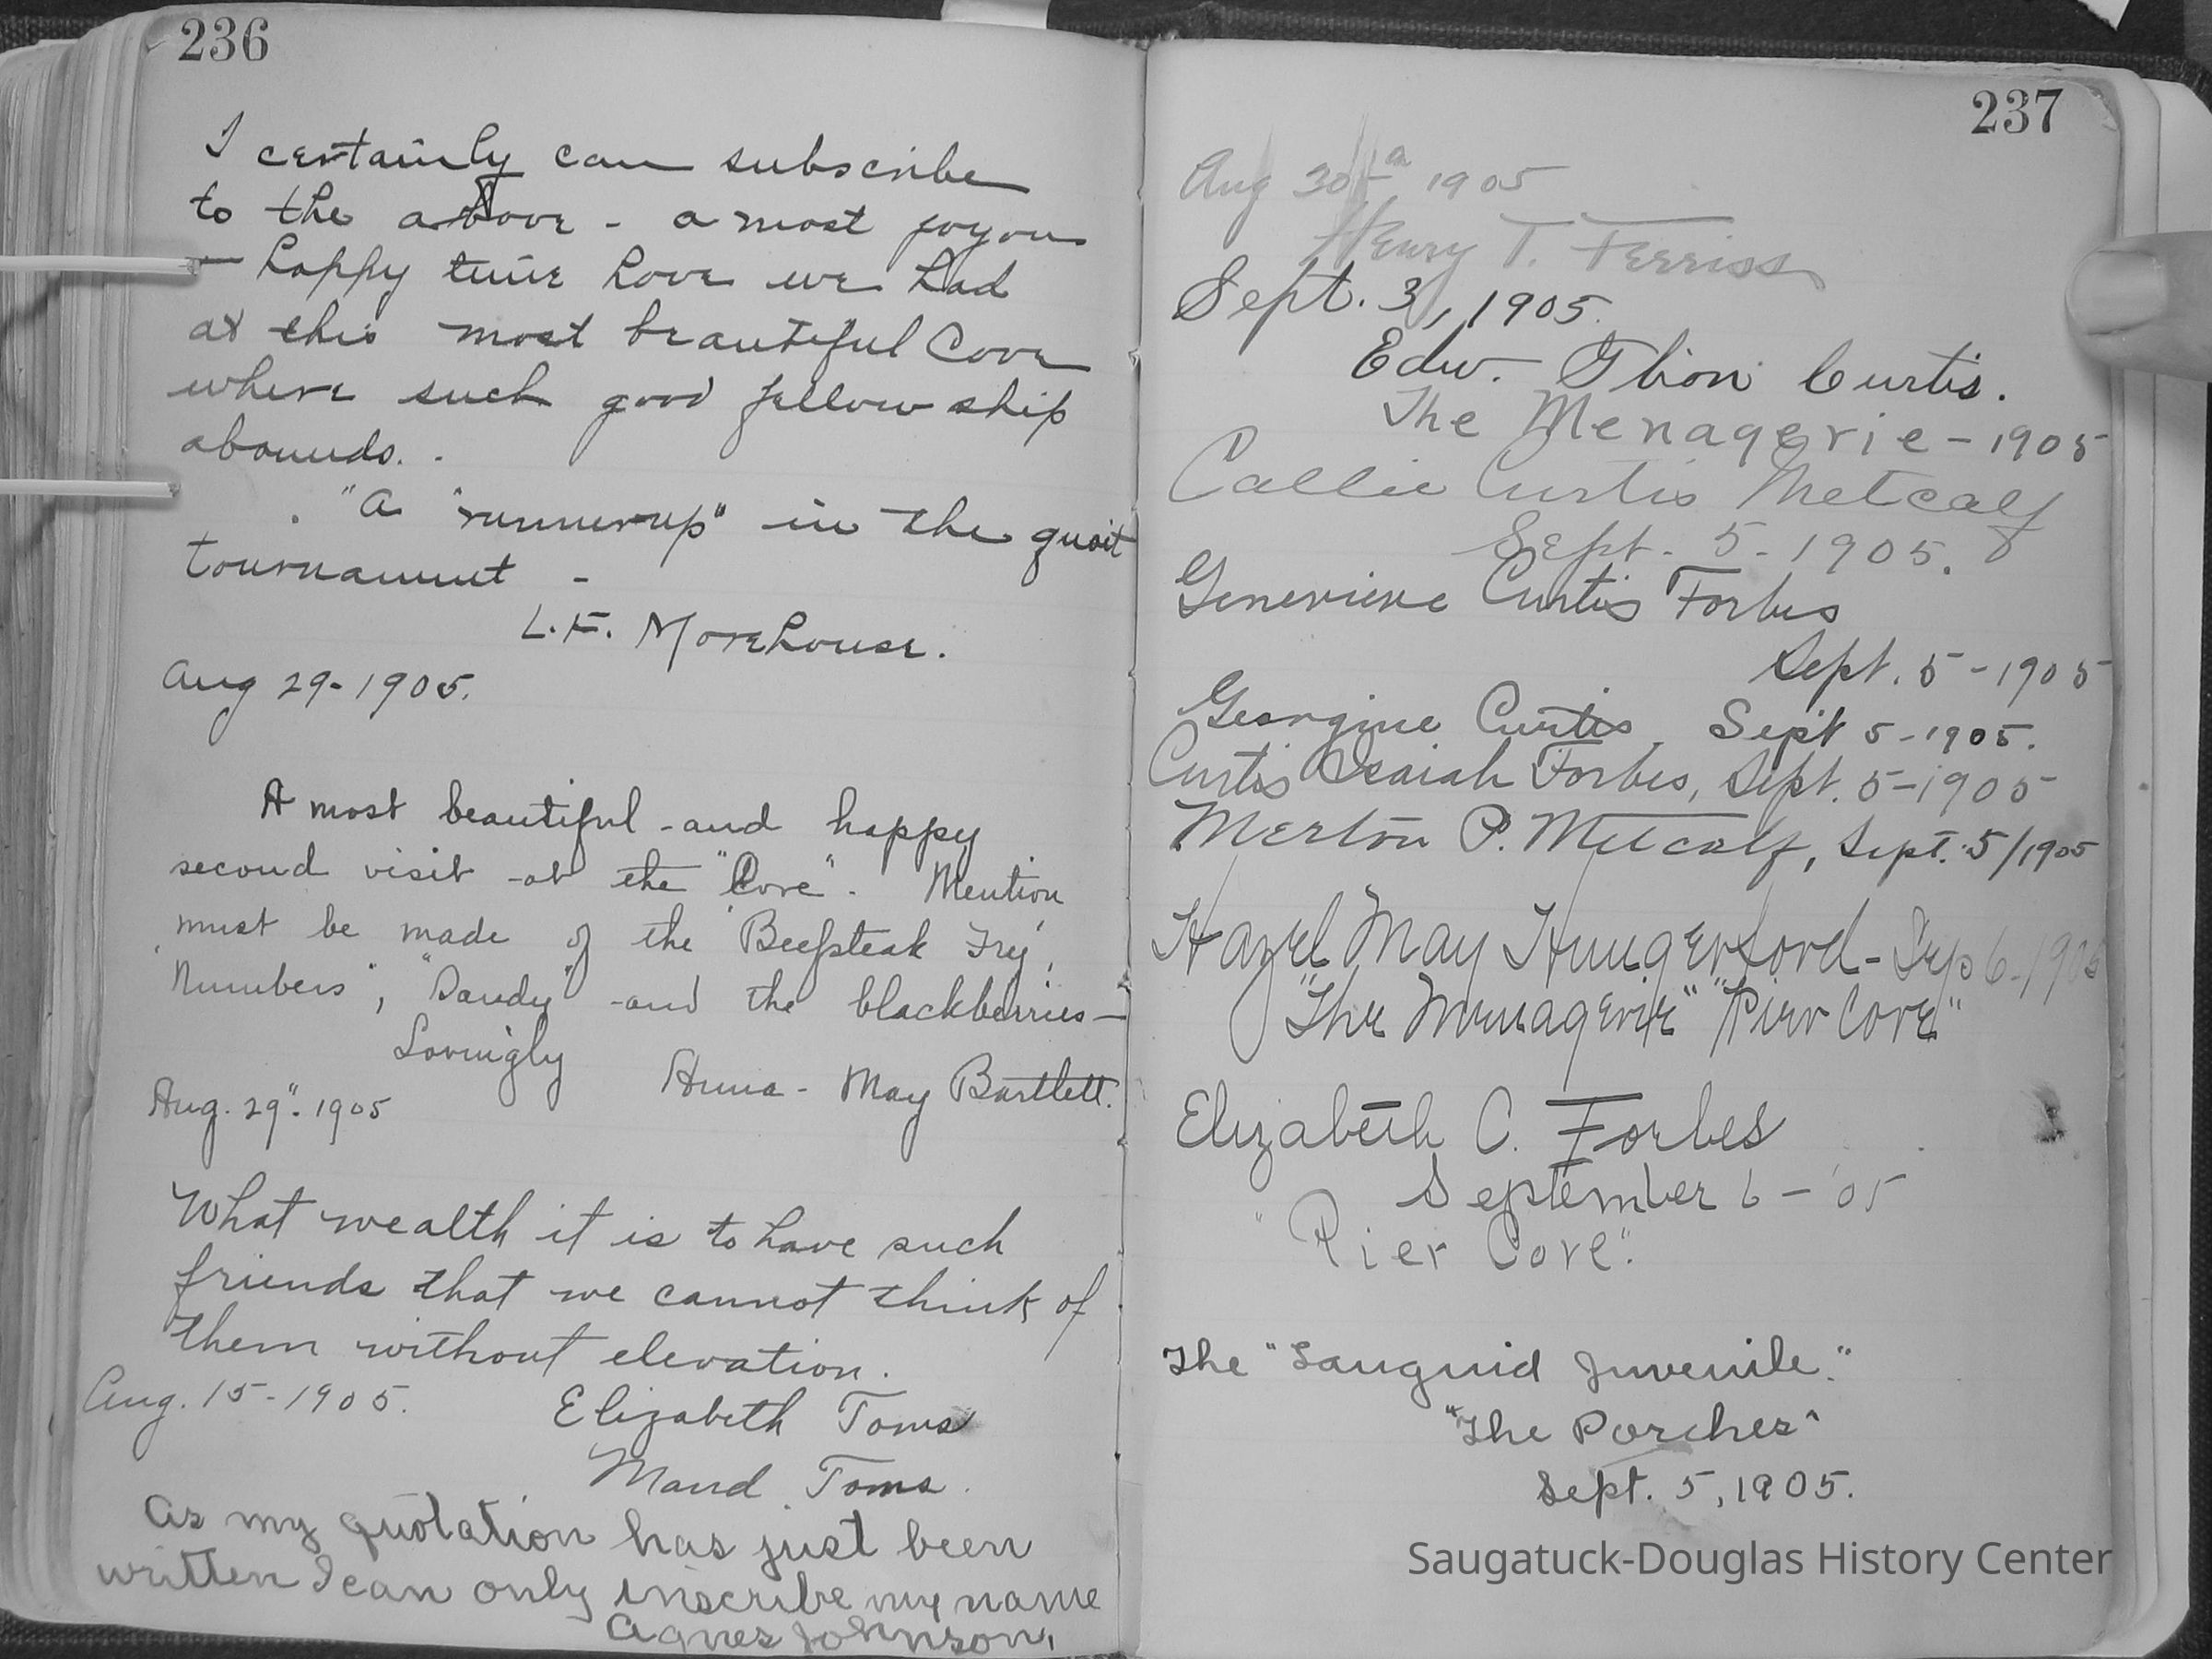 236
I certainly can subscribe
to the above - a most joyous
- happy time have we had
at this most beautiful Cove
where such good fellowship
abounds. -
"A "runnerup" in the quoit
tournament -
L. F. Morehouse.
Aug 29-1905.
A most beautiful - and happy
second visit - at the "Cove". Mention
must be made of the "Beefsteak Fry,
"Numbers", "Dandy" - and the blackberries -
Lovingly
Anna - May Bartlett.
Aug. 29". 1905
What wealth it is to have such
friends that we cannot think of
them without elevation.
Aug. 15-1905.
Elizabeth Toms
Maud Toms.
As my quotation has just been
written I can only inscribe my name
Agnes Johnson,
237
Aug 30th 1905
Henry T. Ferriss
Sept. 3, 1905.
Edw. Curtis.
The Menagerie - 1905
Callie Curtis Metcalf
Sept. 5-1905.
Genevieve Curtis Forbes
Sept. 5-1905
Georgine Curtis, Sept 5-1905.
Curtis Isaiah Forbes, Sept. 5-1905
Merton P. Metcalf, Sept. 5/1905
Hazel May Hungerford - Sep 6-1905
"The Menagerie" "Pier Cove"
Elizabeth C. Forbes
September 6 - '05
"Pier Cove".
The "Languid Juvenile."
"The Porches"
Sept. 5, 1905.
Saugatuck-Douglas History Center